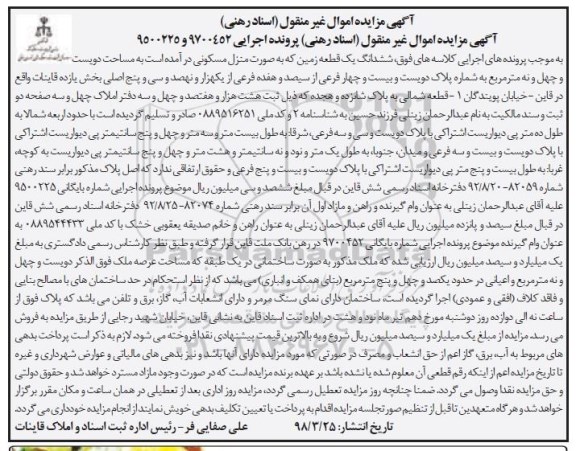 آگهی مزایده اموال غیر منقول (اسناد رهنی)
آگهی مزایده اموال غیر منقول (اسناد رهنی) پرونده اجرایی ۹۷۰۰۴۵۲ و ۹۵۰۰۲۲۵
به موجب پرونده های اجرایی کلاسه های فوق، ششدانگ یک قطعه زمین که به صورت منزل مسکونی در آمده است به مساحت دویست
و چهل و نه متر مربع به شماره پلاک دویست و بیست و چهار فرعی از سیصد و هفده فرعی از یکهزار و نهصد و سی و پنج اصلی بخش یازده قاینات واقع
در قاین - خیابان پویندگان ۱ - قطعه شمالی به پلاک شانزده و هجده که ذیل ثبت هشت هزار و هفتصد و چهل و سه دفتر املاک چهل و سه صفحه دو
ثبت و سند مالکیت به نام عبدالرحمان زینلی فرزند حسین به شناسنامه ۲ و کد ملی ۰۸۸۹۵۱۶۲۵۱ صادر و تسلیم گردیده است با حدود اربعه شمالا به
طول ده متر پی دیواریست اشتراکی با پلاک دویست و سی و سه فرعی، شرقا به طول بیست متر و سه متر و چهل و پنج سانتیمتر پی دیواریست اشتراکی
با پلاک دویست و بیست و سه فرعی و میدان، جنوبا، به طول یک متر و نود و نه سانتیمتر و هشت متر و چهل و پنج سانتیمتر پی دیواریست به کوچه،
غربا به طول بیست و پنج متر پی دیواریست اشتراکی با پلاک دویست و بیست و پنج فرعی و حقوق ارتفاقی ندارد که اصل پلاک مذکور برابر سند رهنی
شماره ۸۲۰۵۹-۹۲/۸/۲۰ دفترخانه اسناد رسمی شش قاین در قبال مبلغ ششصد و سی میلیون ریال موضوع پرونده اجرایی شماره بایگانی ۹۵۰۰۲۲۵
علیه آقای عبدالرحمان زینلی به عنوان وام گیرنده و راهن و مازاد اول آن برابر سند رهنی شماره ۸۲۰۷۴-۹۲/۸/۲۵ دفترخانه اسناد رسمی شش قاین
در قبال مبلغ سیصد و پانزده میلیون ریال علیه آقای عبدالرحمان زینلی به عنوان راهن و خانم صدیقه یعقوبی خشک با کد ملی ۰۸۸۹۵۴۴۴۳۳ به
عنوان وام گیرنده موضوع پرونده اجرایی شماره بایگانی ۹۷۰۰۴۵۲ در رهن بانک ملت قاین قرار گرفته و طبق نظر کارشناس رسمی دادگستری به مبلغ
یک میلیارد و سیصد میلیون ریال ارزیابی شده که ملک مذکور به صورت ساختمانی در یک طبقه که مساحت عرصه ملک فوق الذکر دویست و چهل
و نه متر مربع و اعیانی در حدود یکصد و چهل و پنج متر مربع (بنای همکف و انباری) می باشد که از نظر استحکام در حد ساختمان های با مصالح بنایی
و فاقد کلاف (افقی و عمودی) اجرا گردیده است، ساختمان دارای نمای سنگ مرمر و دارای انشعابات آب، گاز، برق و تلفن می باشد که پلاک فوق از
ساعت نه الی دوازده روز دوشنبه مورخ دهم تیر ماه نود و هشت در اداره ثبت اسناد قاین به نشانی قاین، خیابان شهید رجایی از طریق مزایده به فروش
می رسد. مزایده از مبلغ یک میلیارد و سیصد میلیون ریال شروع و به بالاترین قیمت پیشنهادی نقدا فروخته می شود. لازم به ذکر است پرداخت بدهی
های مربوط به آب، برق، گاز اعم از حق انشعاب و مصرف در صورتی که مورد مزایده دارای آنها باشد و نیز بدهی های مالیاتی و عوارض شهرداری و غیره
تا تاریخ مزایده اعم از اینکه رقم قطعی آن معلوم شده یا نشده باشد بر عهده برنده مزایده است که در صورت وجود مازاد مسترد خواهد شد و حقوق دولتی
و حق مزایده نقدا وصول می گردد. ضمنا چنانچه روز مزایده تعطیل رسمی گردد، مزایده روز اداری بعد از تعطیلی در همان ساعت و مکان مقرر برگزار
خواهد شد و هر گاه متعهدین تا قبل از تنظیم صورتجلسه مزایده اقدام به پرداخت یا تعیین تکلیف بدهی خویش نمایند از انجام مزایده خودداری می گردد.
تاریخ انتشار: ۹۸/۳/۲۵ علی صفایی فر - رئیس اداره ثبت اسناد و املاک قاینات